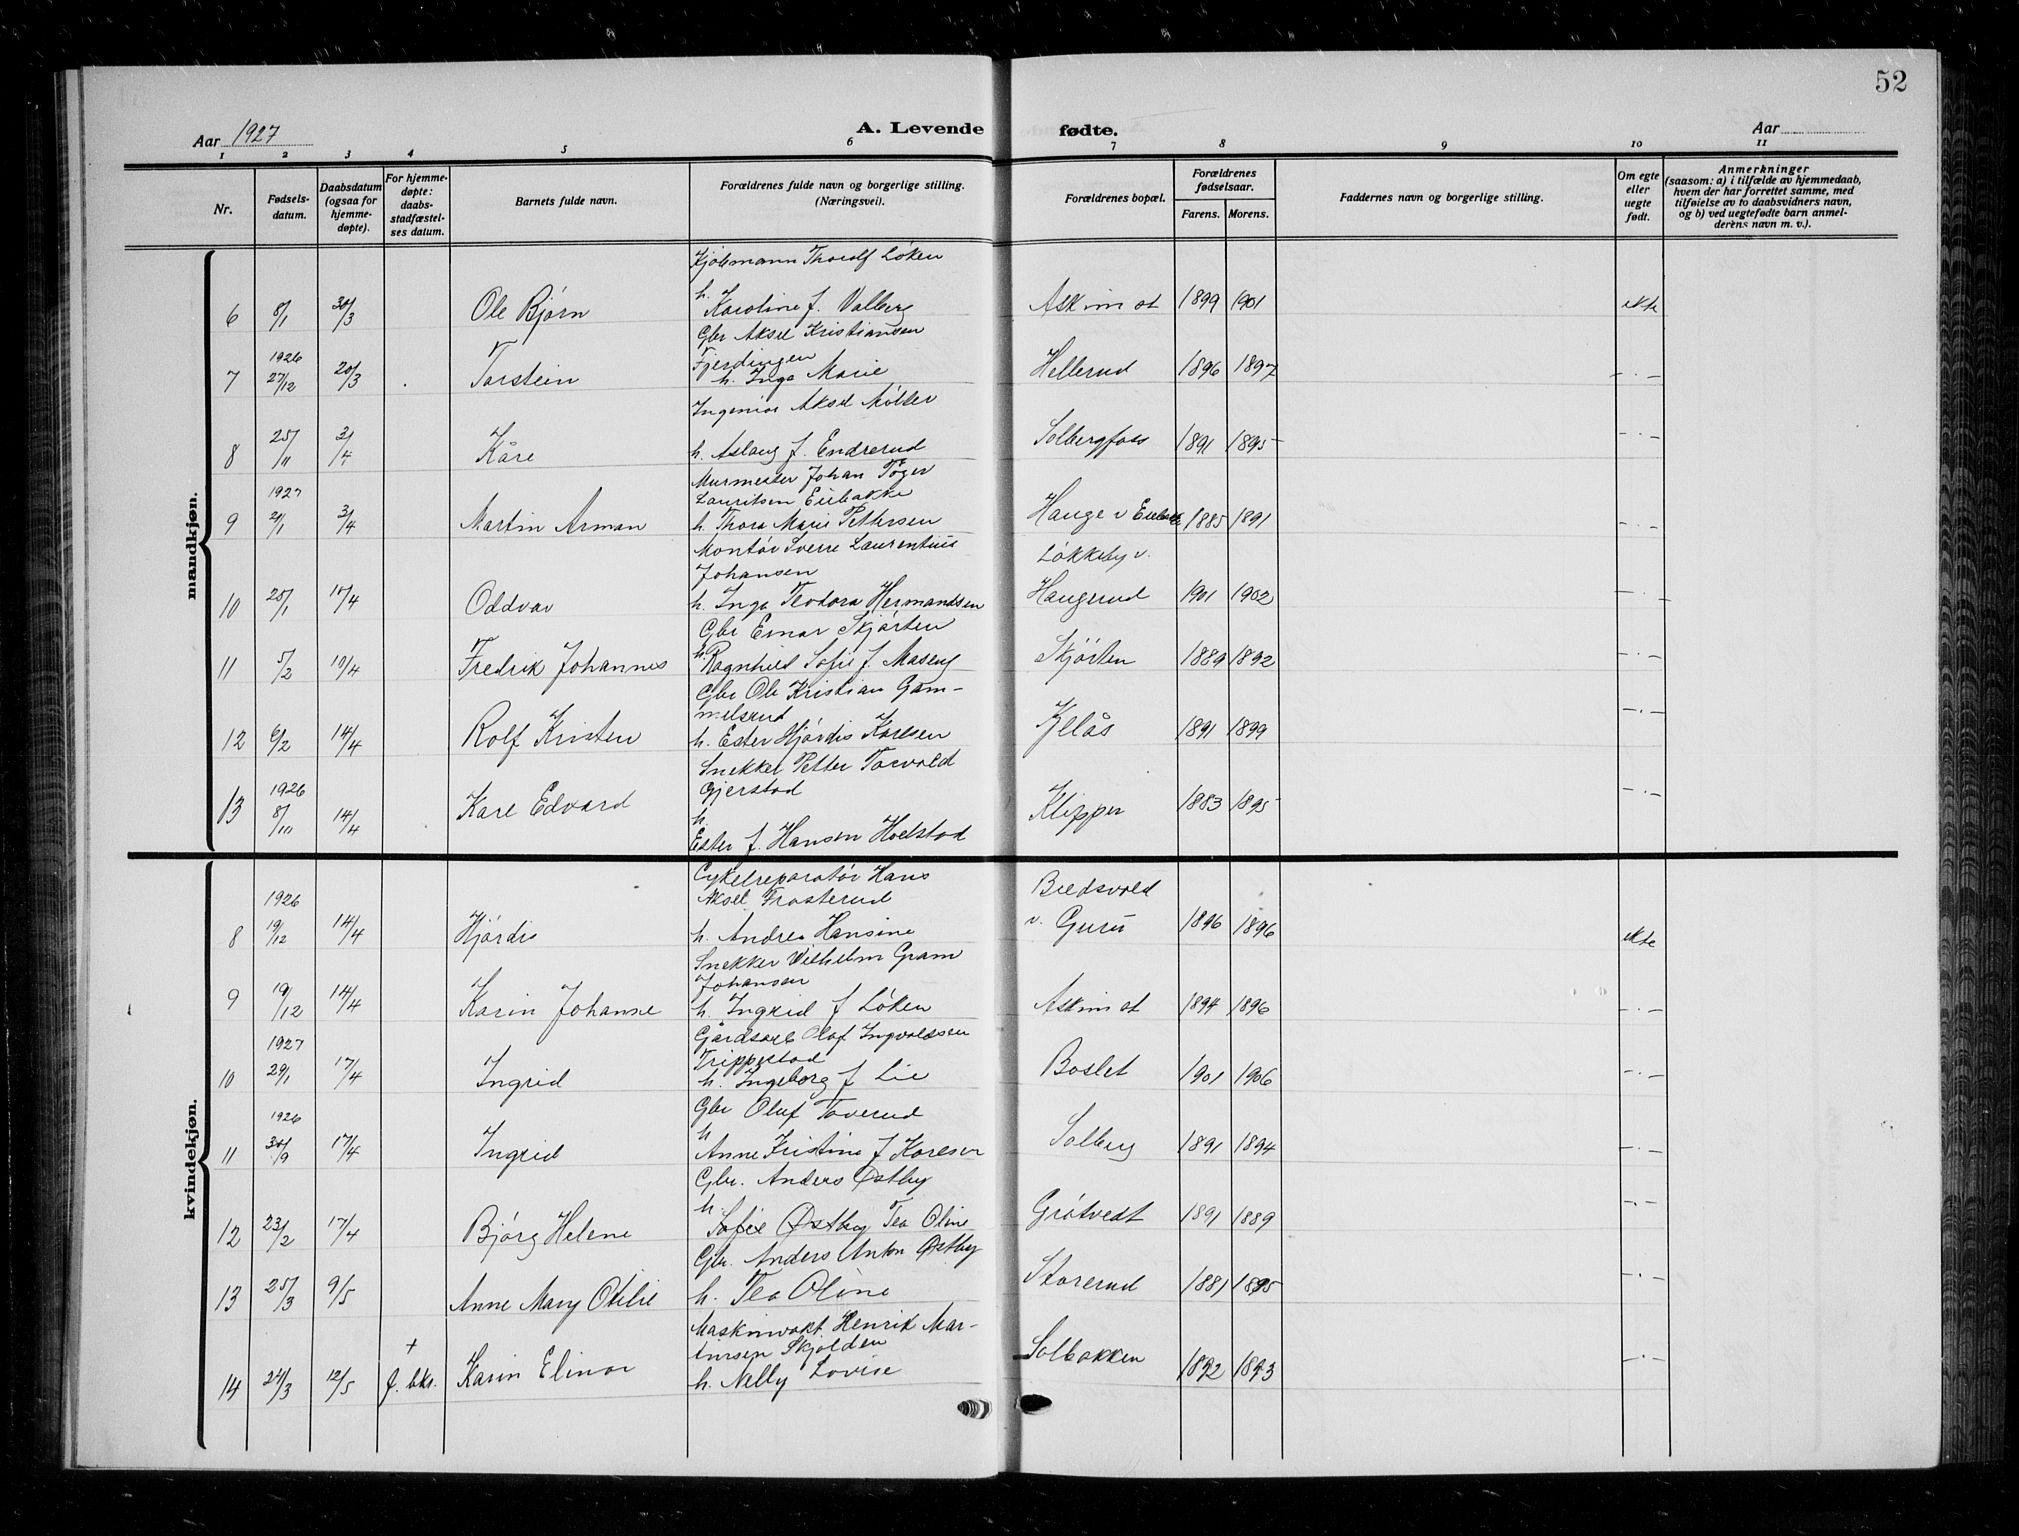 52
Aar 1927
A. Levende fødte.
Aar
1 2 3 4 5 6 7 8 9 10 11
Nr.
Fødsels-
datum.
Daabsdatum
(ogsaa for
hjemme-
døpte).
For hjemme-
døpte:
daabs-
stadfæstel-
ses datum.
Barnets fulde navn.
Forældrenes fulde navn og borgerlige stilling.
(Næringsvei).
Forældrenes bopæl.
Forældrenes
fødselsaar.
Farens. Morens.
Faddernes navn og borgerlige stilling.
Om egte
eller
uegte
født.
Anmerkninger
(saasom: a) i tilfælde av hjemmedaab,
hvem der har forrettet samme, med
tilføielse av to daabsvidners navn,
og b) ved uegtefødte barn anmel-
derens navn m. v.).
mandkjøn.
Kjøbmann Thoralf Løken
6 8/1 30/3 Ole Bjørn h. Karoline f. Valberg Askim st 1899 1901 ekte
Gbr Aksel Kristiansen
Fjerdingen
7 1926 27/12 20/3 Torstein h. Inga Marie Hellerud 1896 1897 - . -
Ingeniør Aksel Møller
8 25/11 3/4 Kåre h. Aslaug f. Endrerud Solbergfoss 1891 1895 - . -
Murmester Johan Töger
Lauritsen Eiebakke
9 1927 2/1 3/4 Martin Arman h. Thora Marie Pettersen Hauge v Eiebakk 1885 1891 - . -
Montør Sverre Laurentius
Johansen
Løkkeby v.
10 25/1 10/4 Oddvar h. Inga Teodora Hermandsen Haugerud 1901 1902 - . -
Gbr Einar Skjørten
11 5/2 10/4 Fredrik Johannes h. Ragnhild Sofie f. Maseng Skjørten 1889 1892 - . -
Gbr Ole Kristian Gam-
melsrud
12 6/2 14/4 Rolf Kristen h. Ester Hjørdis Karlsen Kjllås 1891 1899 - . -
Snekker Petter Torvald
Gjerstad
13 1926 8/10 14/4 Kare Edvard h. Ester f. Hansen Hoelstad Klypper 1883 1895 - . -
kvindekjøn.
Cykelreparatør Hans
Aksel Frosterud
Bredsvold
8 1926 19/12 14/4 Hjørdis h. Andrea Hansine v. Guru 1896 1896 ekte
Snekker Vilhelm Gram
Johansen
9 19/12 14/4 Karin Johanne h. Ingrid f Løken Askim st 1894 1896 - . -
Gårdsarb Olaf Ingvaldsen
Trippestad
10 1927 29/1 17/4 Ingrid h. Ingeborg f Lie Boslet 1901 1906 - . -
Gbr Oluf Taverud
11 1926 30/9 17/4 Ingrid h Anne Kristine f Karlsen Solberg 1891 1894 - . -
Gbr. Anders Østby
12 23/2 17/4 Bjørg Helene h. Sofie Østby Tea Oline Grøtvedt 1891 1889 - . -
Gbr. Anders Anton Østby
13 25/3 9/5 Anne Mary Otilie h. Tea Oline Storerud 1881 1895 - . -
Maskinvakt. Henrik Mar-
tinsen Skjolden
14 24/3 12/5 + f. bks. Karin Elinor h. Nelly Lovise Solbakken 1892 1893 - . -